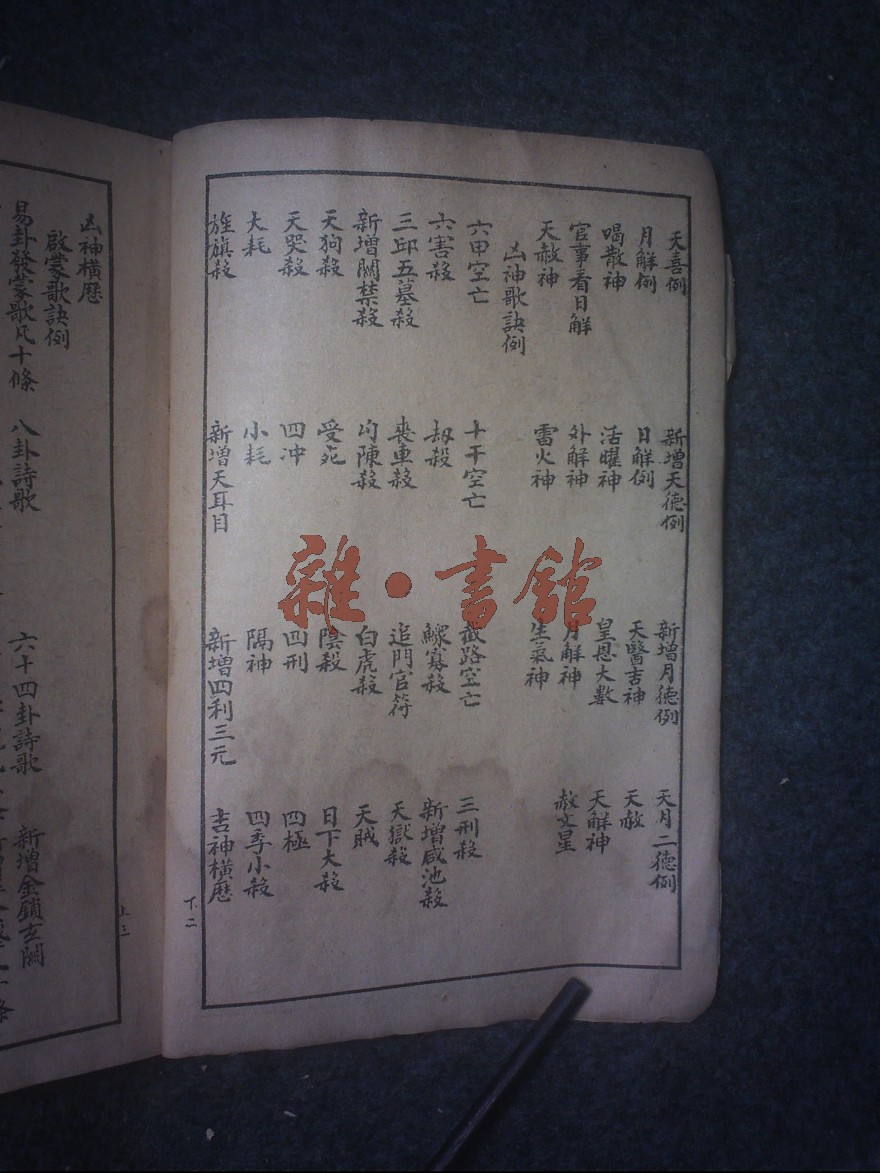 天喜例 新增天德例 新增月德例 天月二德例
月解例 日解例 天醫吉神 天赦
喝散神 活曜神 皇恩大數 天解神
官事看日解 外解神 月解神 赦文星
天赦神 雷火神 生氣神
凶神歌訣例
六甲空亡 十干空亡 截路空亡 三刑殺
六害殺 刼殺 鰥寡殺 新增咸池殺
三邱五墓殺 喪車殺 追門官符 天獄殺
新增關禁殺 勾陳殺 白虎殺 天賊
天狗殺 受死 陰殺 日下大殺
天哭殺 四冲 四刑 四極
大耗 小耗 隔神 四季小殺
旌旗殺 新增天耳目 新增四利三元 吉神橫歷
下二
凶神橫歷
啟蒙歌訣例
易卦發蒙歌凡十條 八卦詩歌 六十四卦詩歌 新增金鎖玄關
上三
雜·書館